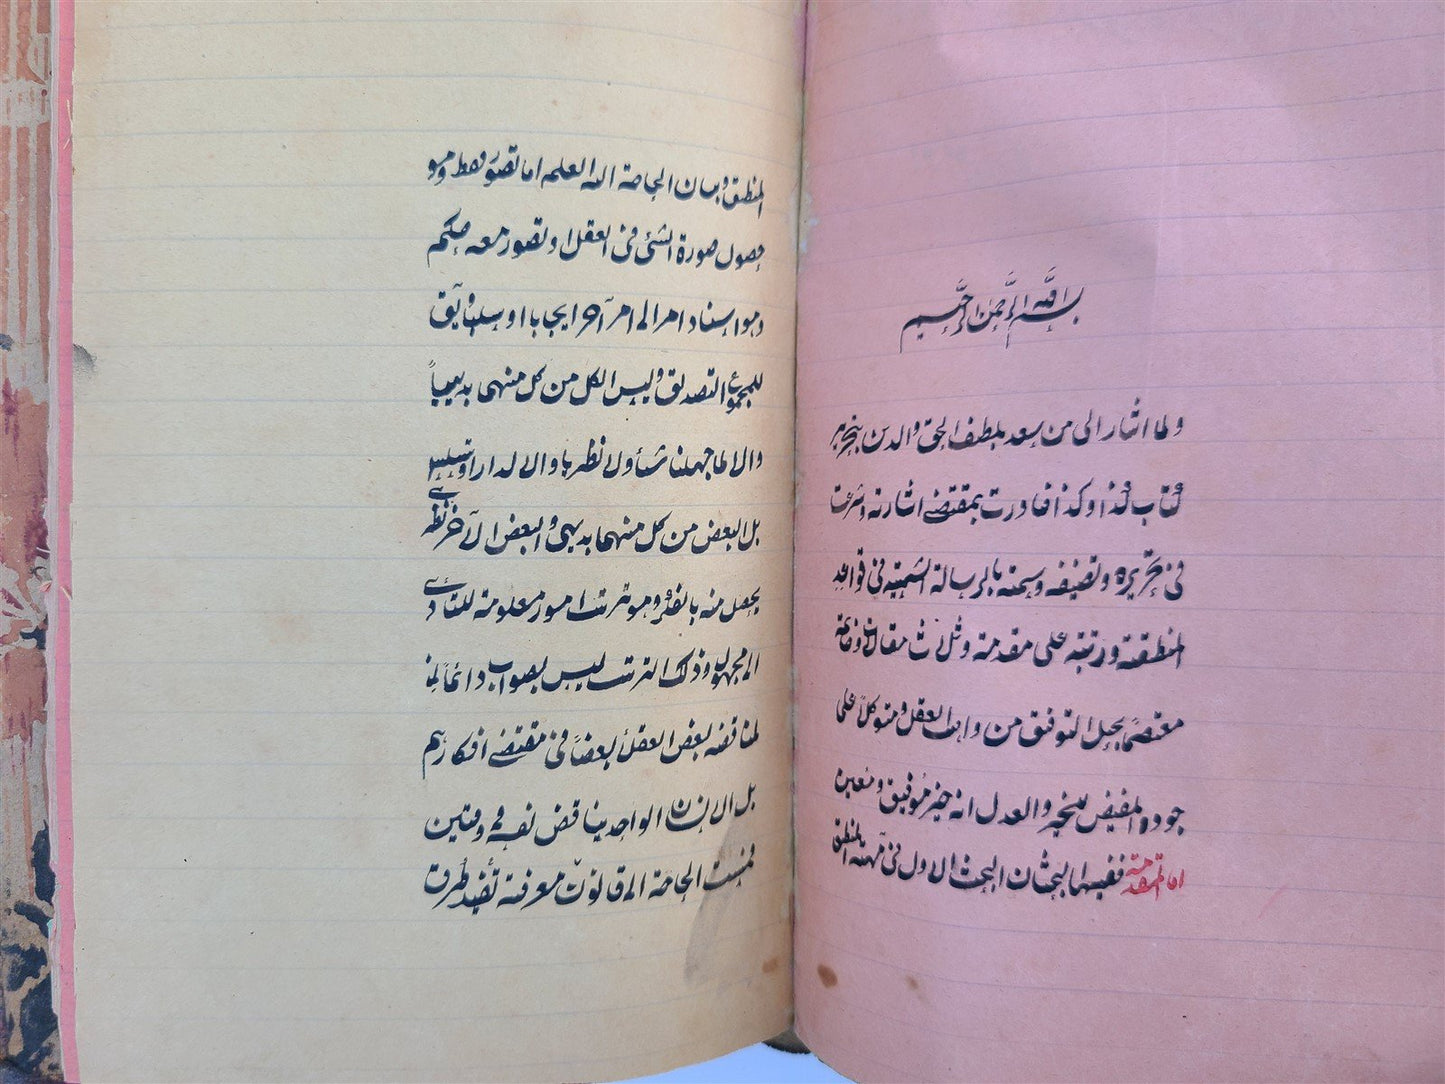 بسم الله الرحمن الرحيم
ولما اشار الي من سعد بلطف الحق والدين بتحرير
كتاب كذا وكذا فبادرت بمقتضى اشارته وشرعت
فى تحريره وتصنيفه وسميته بالرسالة الشمسية فى قواعد
المنطقية ورتبته على مقدمة وثلاث مقالات وخاتمة
معتصمًا بحبل التوفيق من واهب العقل ومتوكلاً على
جوده المفيض للخير والعدل انه خير مُوفق ومُعين
اما المقدمة ففيها البحثان البحث الاول فى مهية المنطق
المنطق وبيان الحاجة اليه العلم اما تصوّر فقط وهو
حصول صورة الشئ فى العقل او تصور معه حكم
وهو اسناد امر الى امر آخر ايجابا او سلبا ويق
للمجموع التصديق وليس الكل من كل منهما بديهياً
والا لما جهلنا شيأ ولا نظريا والا لدار او تسلس
بل البعض من كل منهما بديهى والبعض الآخر نظرى
يحصل منه بالفكر وهو ترتيب امور معلومة للتادى
الى مجهول وذلك الترتيب ليس بصواب دائمًا لما
لمناقضة بعض العقلأ بعضاً فى مقتضى افكارهم
بل الانسان الواحد يناقض نفسه فى وقتين
فمست الحاجة الى قانون معرفة تُفيد طُرق